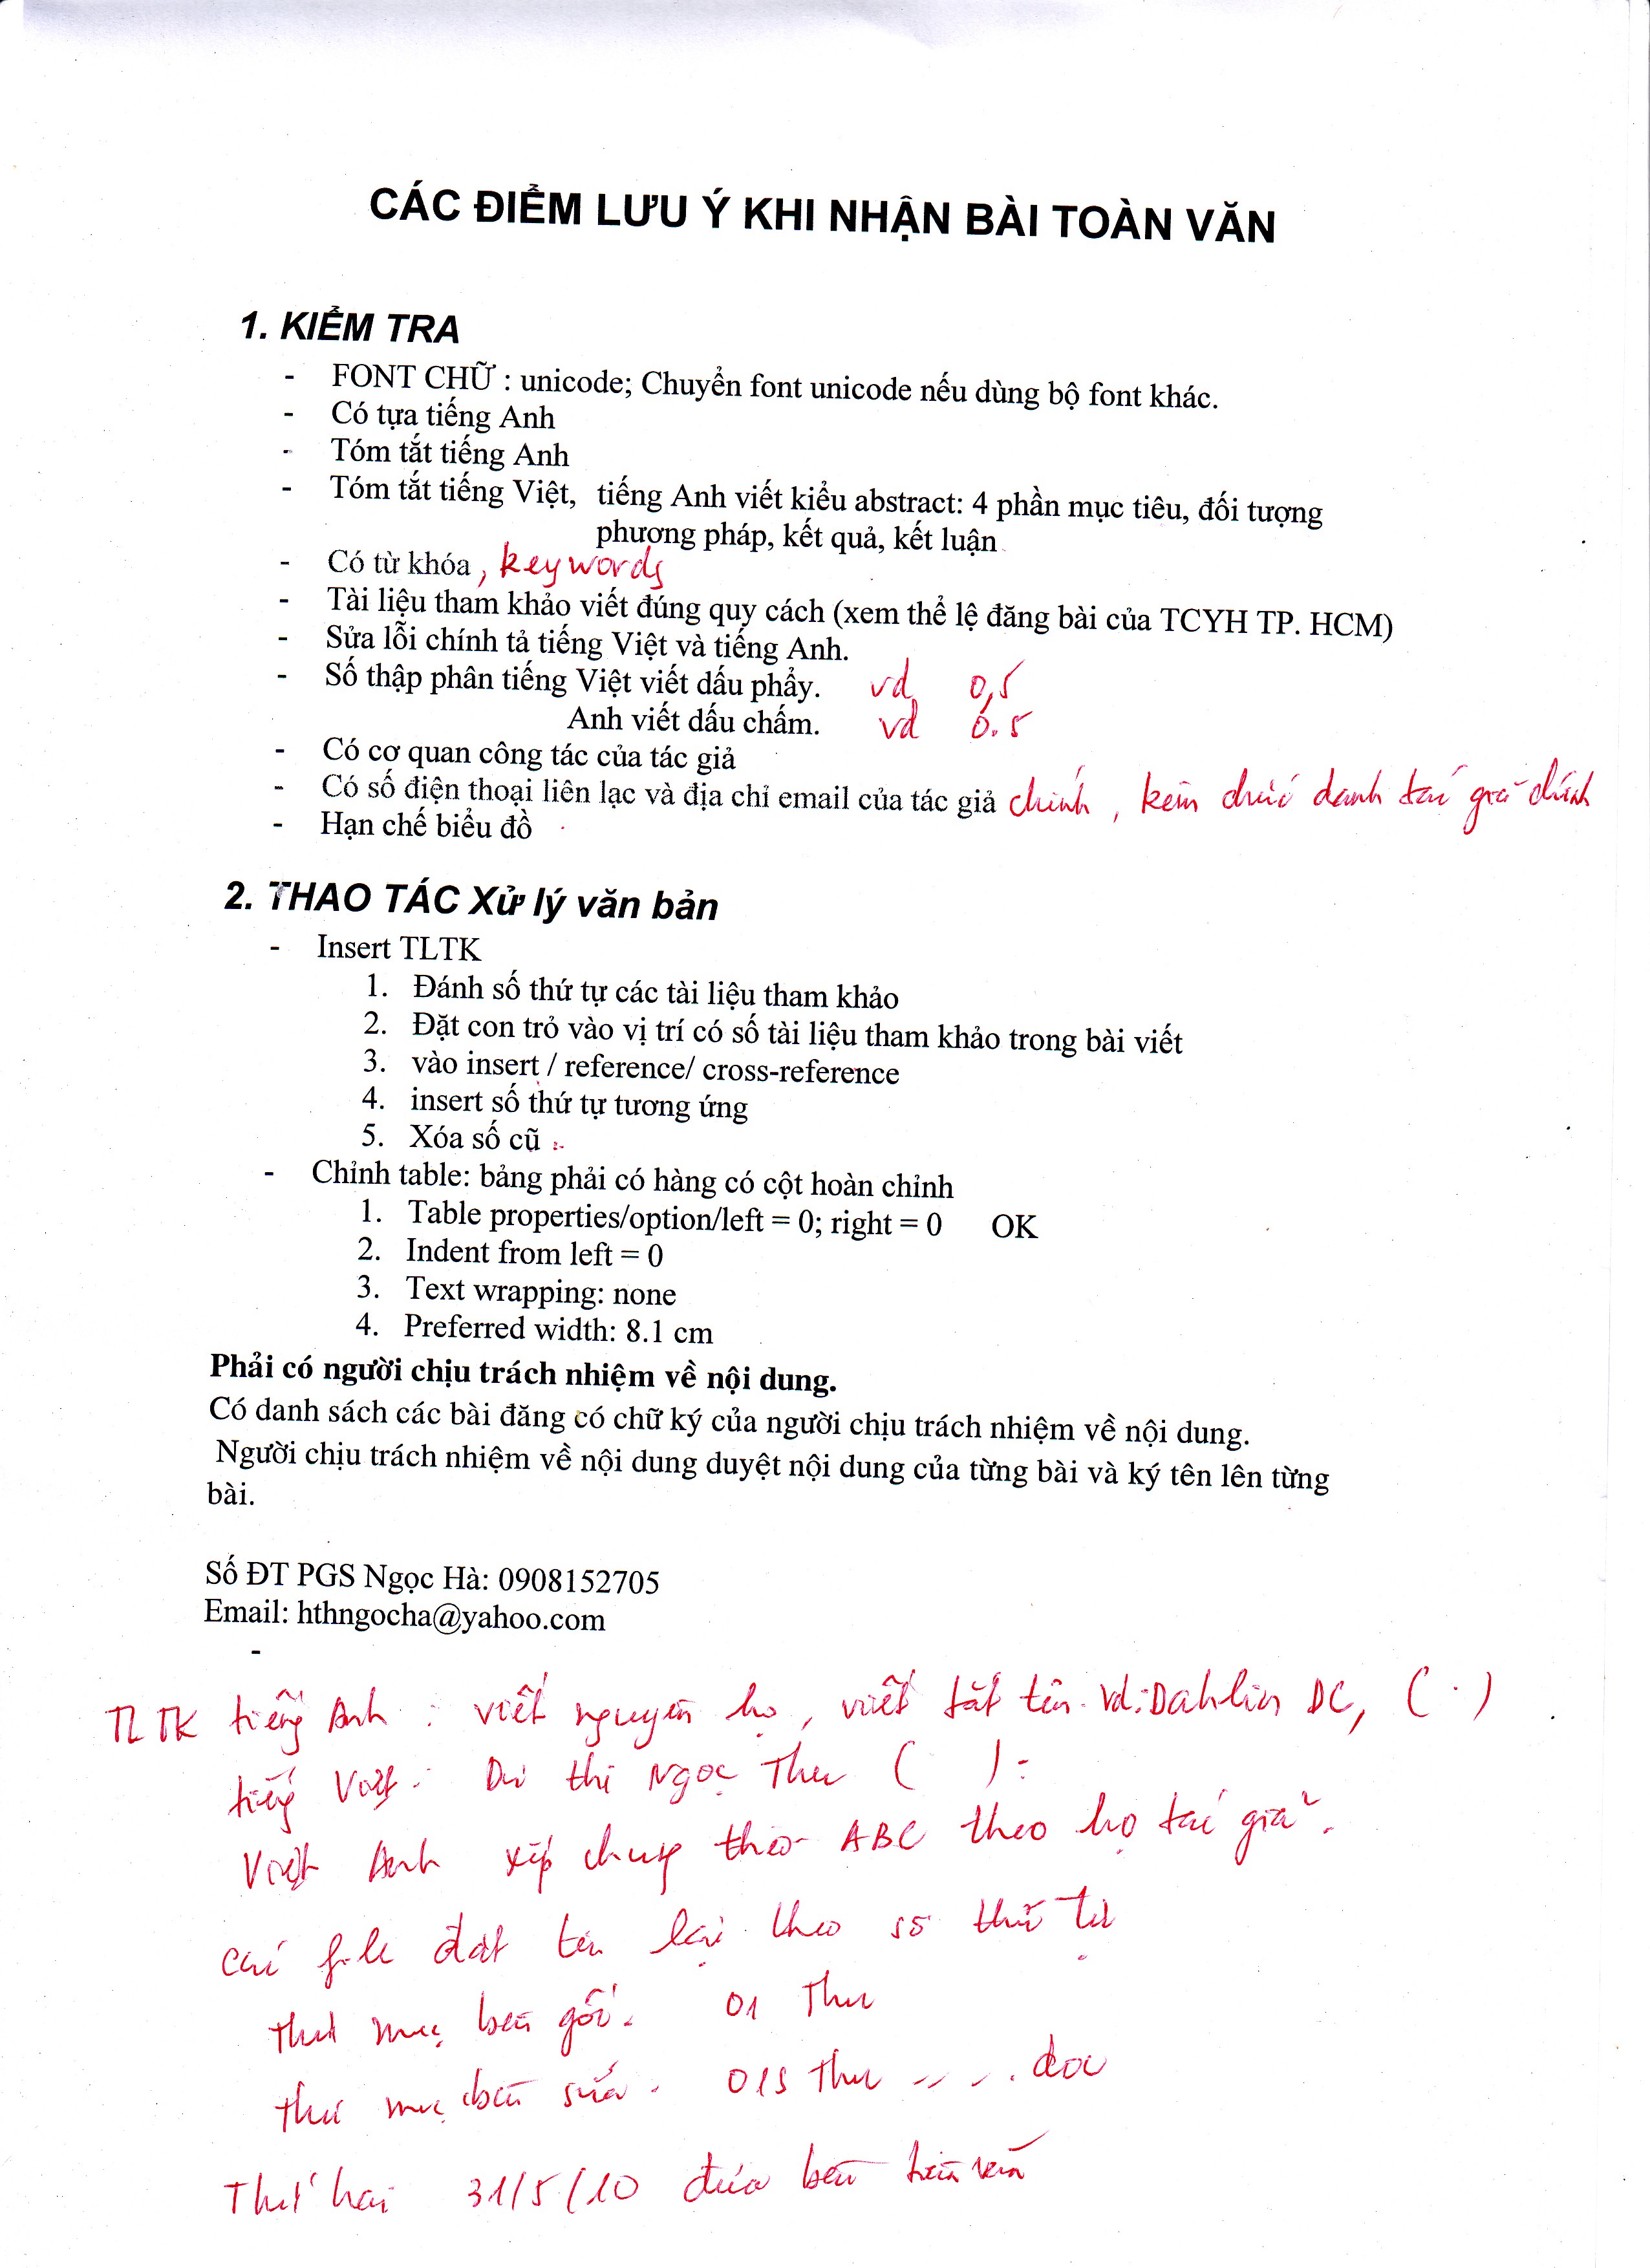 CÁC ĐIỂM LƯU Ý KHI NHẬN BÀI TOÀN VĂN
1. KIỂM TRA
- FONT CHỮ : unicode; Chuyển font unicode nếu dùng bộ font khác.
- Có tựa tiếng Anh
- Tóm tắt tiếng Anh
- Tóm tắt tiếng Việt, tiếng Anh viết kiểu abstract: 4 phần mục tiêu, đối tượng
phương pháp, kết quả, kết luận
- Có từ khóa, keywords
- Tài liệu tham khảo viết đúng quy cách (xem thể lệ đăng bài của TCYH TP. HCM)
- Sửa lỗi chính tả tiếng Việt và tiếng Anh.
- Số thập phân tiếng Việt viết dấu phẩy. vd 0,5
Anh viết dấu chấm. vd 0.5
- Có cơ quan công tác của tác giả
- Có số điện thoại liên lạc và địa chỉ email của tác giả chính, kèm chức danh tác giả chính
- Hạn chế biểu đồ
2. THAO TÁC Xử lý văn bản
- Insert TLTK
1. Đánh số thứ tự các tài liệu tham khảo
2. Đặt con trỏ vào vị trí có số tài liệu tham khảo trong bài viết
3. vào insert / reference/ cross-reference
4. insert số thứ tự tương ứng
5. Xóa số cũ
- Chỉnh table: bảng phải có hàng có cột hoàn chỉnh
1. Table properties/option/left = 0; right = 0 OK
2. Indent from left = 0
3. Text wrapping: none
4. Preferred width: 8.1 cm
Phải có người chịu trách nhiệm về nội dung.
Có danh sách các bài đăng có chữ ký của người chịu trách nhiệm về nội dung.
Người chịu trách nhiệm về nội dung duyệt nội dung của từng bài và ký tên lên từng
bài.
Số ĐT PGS Ngọc Hà: 0908152705
Email: hthngocha@yahoo.com
-
TLTK tiếng Anh : viết nguyên họ, viết tắt tên. Vd: Dahlin DC, ( . )
tiếng Việt : thị Ngọc Thu ( ) :
Việt Anh xếp chung theo ABC theo họ tác giả.
các file đặt tên lại theo số thứ tự
thư mục bản gốc. 01 Thu
thư mục bản sửa. 01S Thu .doc
Thứ hai 31/5/10 đưa bản